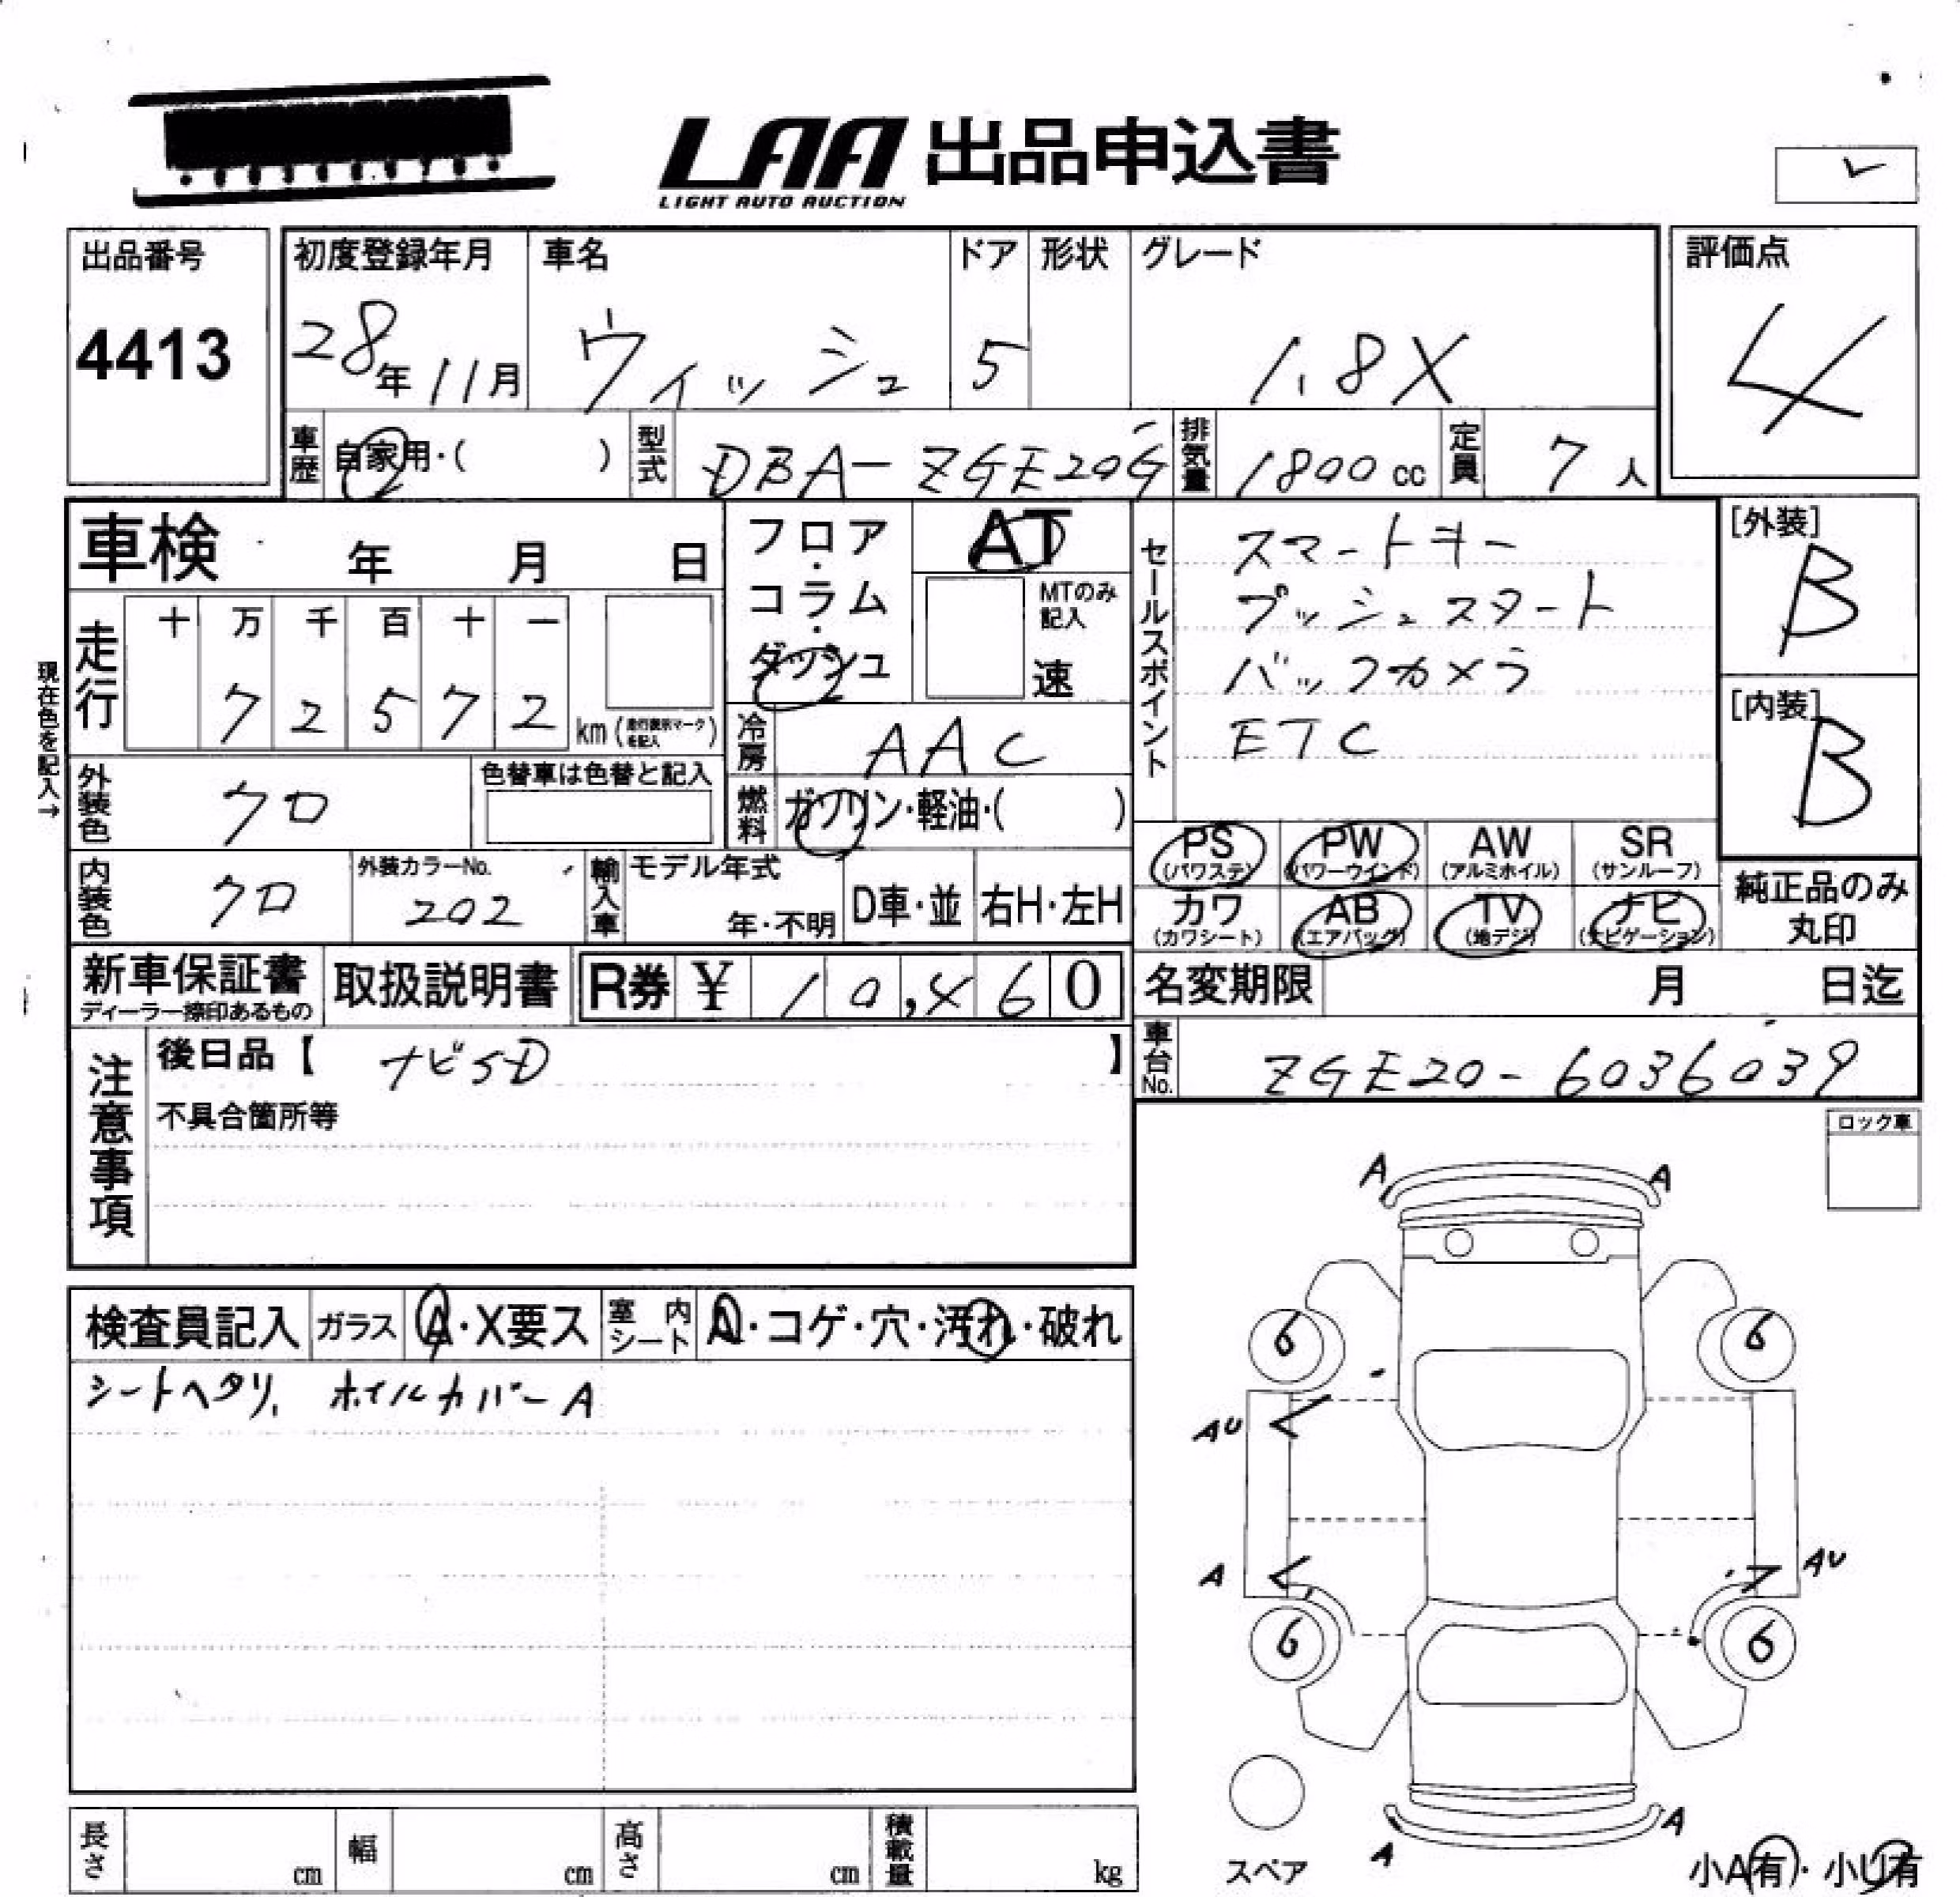 LAA 出品申込書
LIGHT AUTO AUCTION
出品番号 初度登録年月 車名 ドア 形状 グレード 評価点
4413 28年11月 ウィッシュ 5 1.8X 4
車歴 自家用・( ) 型式 DBA-ZGE20G 排気量 1800cc 定員 7人
車検 年 月 日
フロア・コラム・ダッシュ
AT
MTのみ記入
速
セールスポイント
スマートキー
プッシュスタート
バックカメラ
ETC
[外装]
B
[内装]
B
現在色を記入→
走行 十 万 千 百 十 一
7 2 5 7 2 km(走行表示マークを記入)
冷房 AAC
外装色 クロ 色替車は色替と記入
燃料 ガソリン・軽油・( )
PS(パワステ) PW(パワーウインド) AW(アルミホイル) SR(サンルーフ)
カワ(カワシート) AB(エアバッグ) TV(地デジ) ナビ(ナビゲーション)
純正品のみ丸印
内装色 クロ 外装カラーNo. 202 輸入車 モデル年式 年・不明 D車・並 右H・左H
新車保証書 ディーラー捺印あるもの 取扱説明書 R券 ¥ 10,460
名変期限 月 日迄
車台No. ZGE20-6036039
注意事項
後日品【 ナビSD 】
不具合箇所等
ロック車
検査員記入 ガラス A・X要ス 室内シート A・コゲ・穴・汚れ・破れ
シートヘタリ、ホイルカバーA
A A
6 6
AU
A AU
6 6
スペア
A A
小A有・小U有
長さ cm 幅 cm 高さ cm 積載量 kg